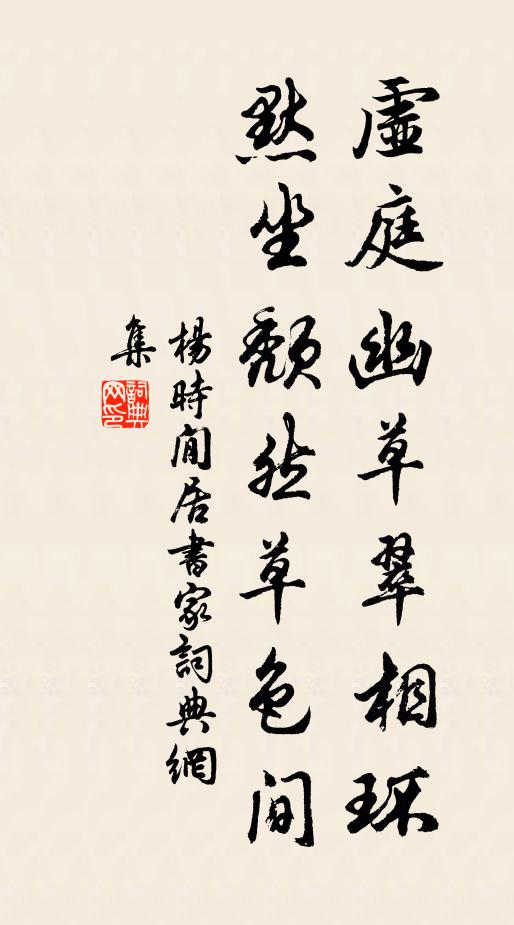 虛庭幽草翠相環
默坐頹然草色間
楊時閒居書家詞典網
集
詞典網印